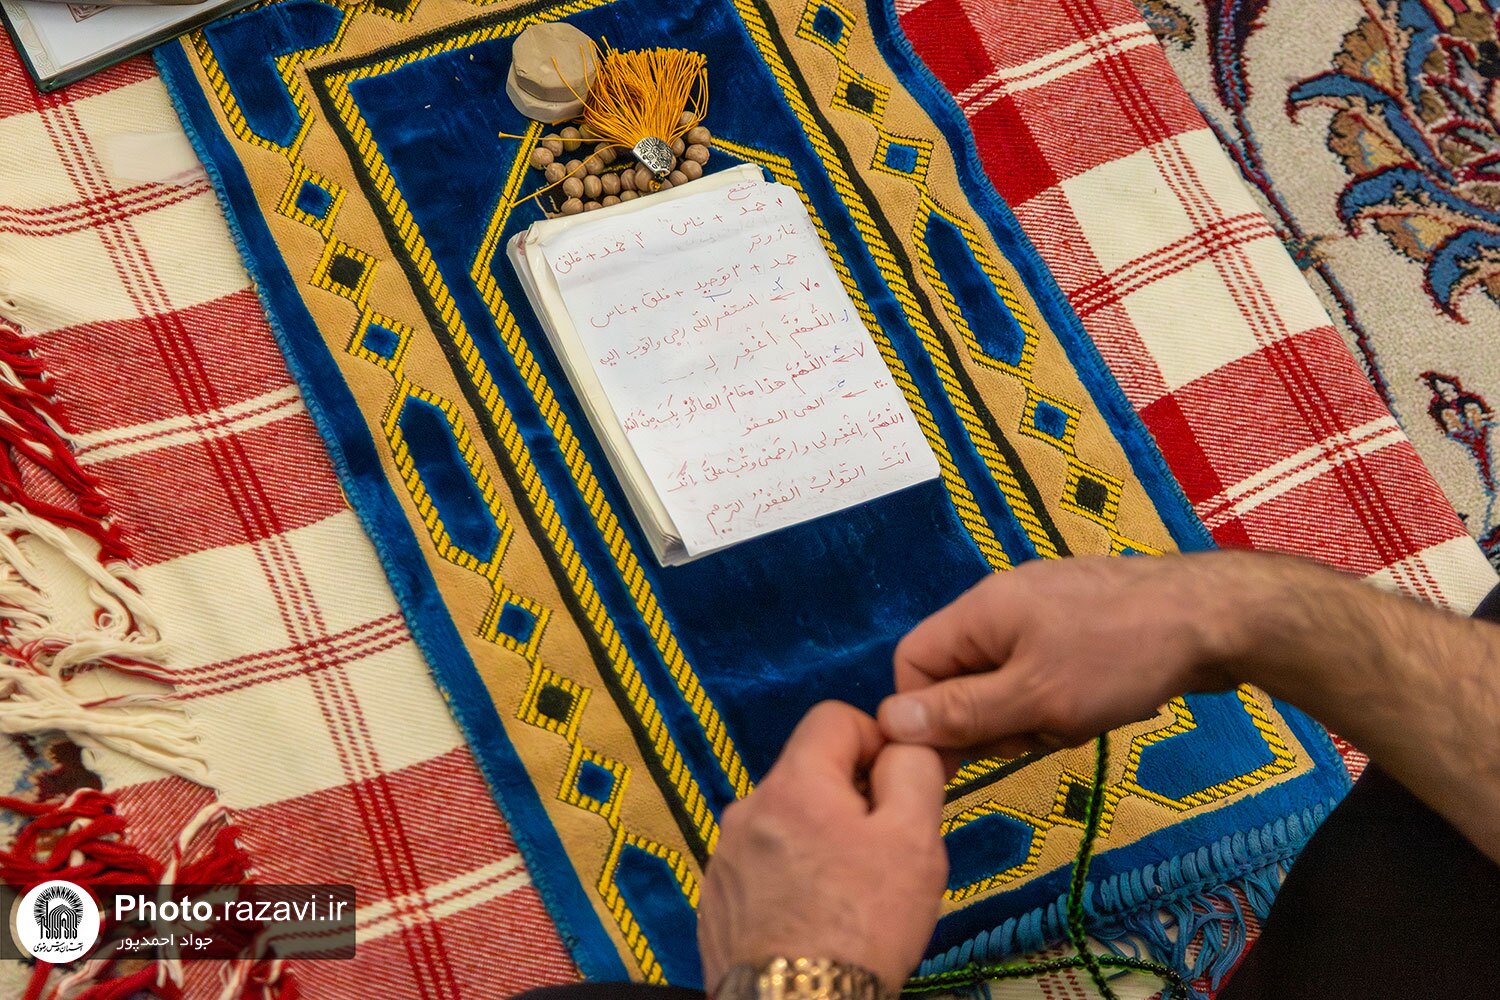 شفع
۱ حمد + ناس ۲ حمد + فلق
نماز وتر
حمد + ۳ توحید + فلق + ناس
۷۰ ← استغفرالله ربی و اتوب الیه
اللّهُمَّ اَغْفِر لِـ
۷ ← اللّهُمَّ هذا مقامُ العائِذِ بِکَ مِنَ النّار
۳۰۰ ← الهی العفو
اللّهُمَّ اِغْفِرلی وارحَمْنی وتُبْ عَلَیَّ اِنَّکَ
اَنْتَ التَّوابُ الغَفُورُ الرَّحیم
Photo.razavi.ir
جواد احمدپور
آستان قدس رضوی